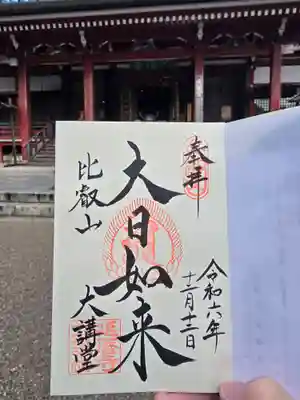 奉拝
令和六年
十二月十二日
大日如来
比叡山
大講堂